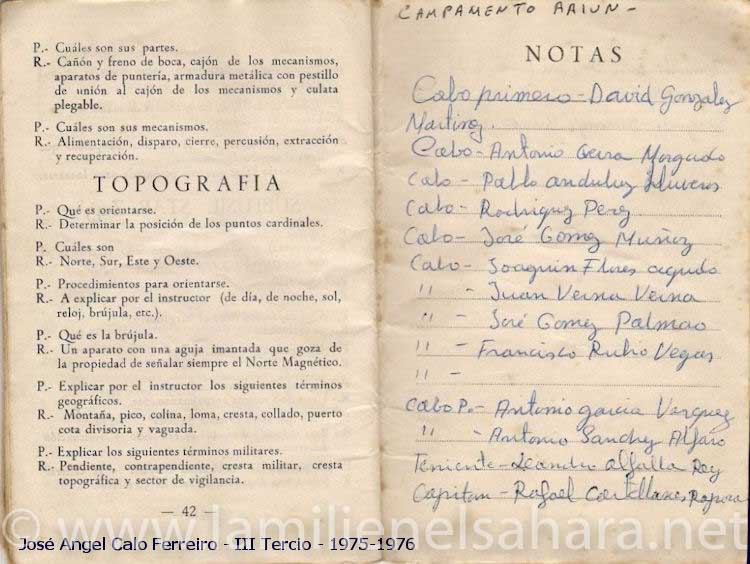 P.- Cuáles son sus partes.
R.- Cañón y freno de boca, cajón de los mecanismos,
aparatos de puntería, armadura metálica con pestillo
de unión al cajón de los mecanismos y culata
plegable.
P.- Cuáles son sus mecanismos.
R.- Alimentación, disparo, cierre, percusión, extracción
y recuperación.
TOPOGRAFIA
P.- Qué es orientarse.
R.- Determinar la posición de los puntos cardinales.
P.- Cuáles son
R.- Norte, Sur, Este y Oeste.
P.- Procedimientos para orientarse.
R.- A explicar por el instructor (de día, de noche, sol,
reloj, brújula, etc.).
P.- Qué es la brújula.
R.- Un aparato con una aguja imantada que goza de
la propiedad de señalar siempre el Norte Magnético.
P.- Explicar por el instructor los siguientes términos
geográficos.
R.- Montaña, pico, colina, loma, cresta, collado, puerto
cota divisoria y vaguada.
P.- Explicar los siguientes términos militares.
R.- Pendiente, contrapendiente, cresta militar, cresta
topográfica y sector de vigilancia.
— 42 —
CAMPAMENTO AAIUN -
NOTAS
Cabo primero - David Gonzalez
Martinez.
Cabo - Antonio Morgado
Cabo - Pablo
Cabo - Rodriguez Perez
Cabo - José Gomez Muñoz
Cabo - Joaquin Flores agudo
" - Juan Verna Verna
" - José Gomez Palmao
" - Francisco Rubio Vegas
" -
Cabo P. - Antonio garcia Vazquez
" - Antonio Sanchez Alfaro
Teniente - Leandro alfalla Rey
Capitan - Rafael
© www.lamilienelsahara.net
José Angel Calo Ferreiro - III Tercio - 1975-1976